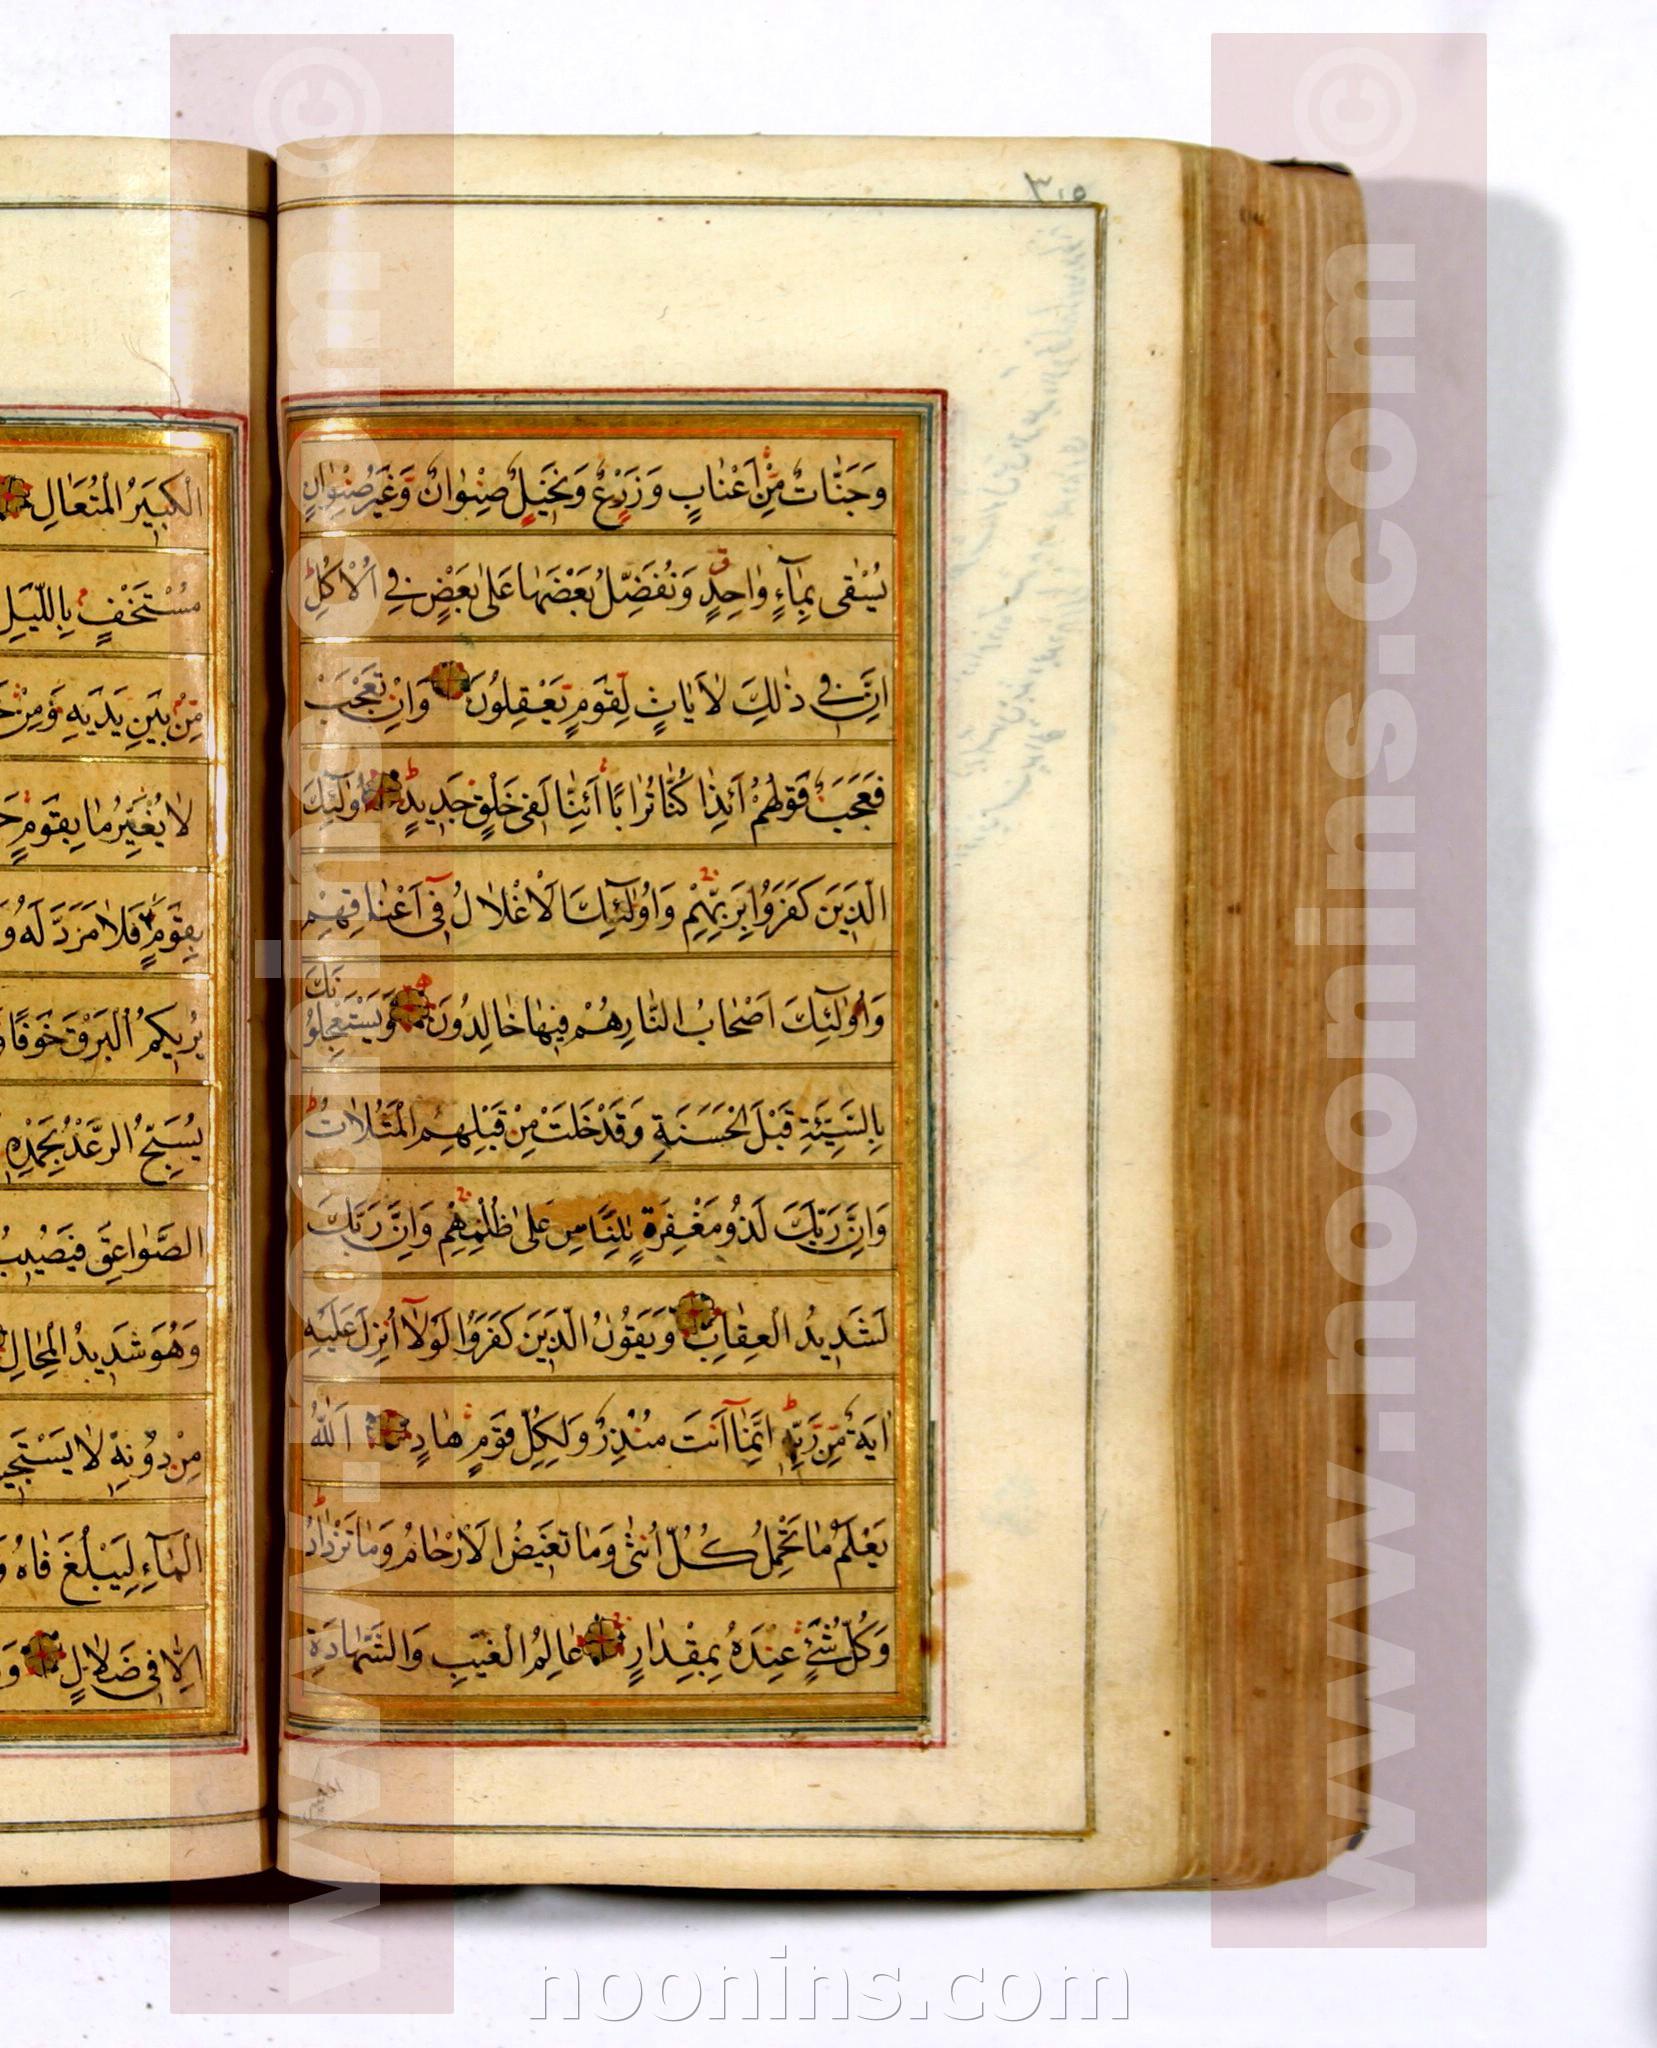 ٣٠٥
وَجَنّٰاتٌ مِّنْ اَعْنٰابٍ وَزَرْعٌ وَنَخيٖلٌ صِنْوٰانٌ وَّغَيْرُ صِنْوٰانٍ
يُسْقٰى بِمٰآءٍ وٰاحِدٍ وَنُفَضِّلُ بَعْضَهٰا عَلىٰ بَعْضٍ فِي الْاُكُلِ
اِنَّ فيٖ ذٰلِكَ لَاٰيٰاتٍ لِّقَوْمٍ يَّعْقِلُونَ وَاِنْ تَعْجَبْ
فَعَجَبٌ قَوْلُهُمْ أَئِذٰا كُنّٰا تُرٰابًا أَئِنّٰا لَفيٖ خَلْقٍ جَديٖدٍ اُولٰٓئِكَ
الَّذيٖنَ كَفَرُوا بِرَبِّهِمْ وَاُولٰٓئِكَ الْاَغْلٰالُ فيٖٓ اَعْنٰاقِهِمْ
وَاُولٰٓئِكَ اَصْحٰابُ النّٰارِ هُمْ فيٖهٰا خٰالِدُونَ وَيَسْتَعْجِلُو
نَكَ
بِالسَّيِّئَةِ قَبْلَ الْحَسَنَةِ وَقَدْ خَلَتْ مِنْ قَبْلِهِمُ الْمَثُلٰاتُ
وَاِنَّ رَبَّكَ لَذُو مَغْفِرَةٍ لِلنّٰاسِ عَلىٰ ظُلْمِهِمْ وَاِنَّ رَبَّكَ
لَشَديٖدُ الْعِقٰابِ وَيَقُولُ الَّذيٖنَ كَفَرُوا لَوْلٰٓا اُنْزِلَ عَلَيْهِ
اٰيَةٌ مِّنْ رَّبِّهٖ اِنَّمٰٓا اَنْتَ مُنْذِرٌ وَلِكُلِّ قَوْمٍ هٰادٍ اَللّٰهُ
يَعْلَمُ مٰا تَحْمِلُ كُلُّ اُنْثىٰ وَمٰا تَغيٖضُ الْاَرْحٰامُ وَمٰا تَزْدٰادُ
وَكُلُّ شَيْءٍ عِنْدَهُ بِمِقْدٰارٍ عٰالِمُ الْغَيْبِ وَالشَّهٰادَةِ
الكبير
الْكَبيٖرُ الْمُتَعٰالِ
مُسْتَخْفٍ بِاللَّيْلِ
مِّنْ بَيْنِ يَدَيْهِ وَمِنْ
لٰا يُغَيِّرُ مٰا بِقَوْمٍ
بِقَوْمٍ فَلٰا مَرَدَّ لَهُ
يُريٖكُمُ الْبَرْقَ خَوْفًا
يُسَبِّحُ الرَّعْدُ بِحَمْدِهٖ
الصَّوٰاعِقَ فَيُصيٖبُ
وَهُوَ شَديٖدُ الْمِحٰالِ
مِنْ دُونِهٖ لٰا
الْمٰآءِ لِيَبْلُغَ فٰاهُ
اِلّٰا فيٖ ضَلٰالٍ
© www.noonins.com
© www.noonins.com
noonins.com